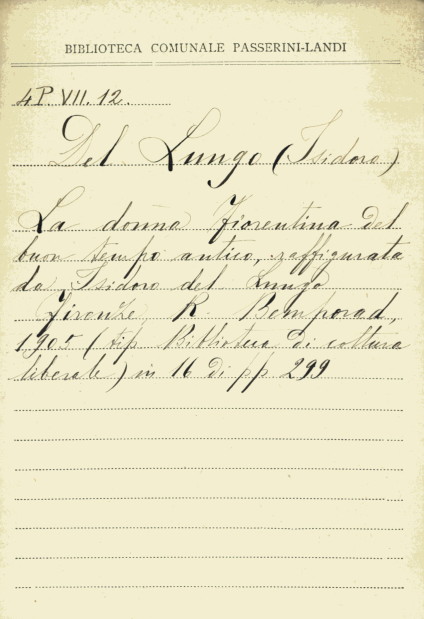 BIBLIOTECA COMUNALE PASSERINI-LANDI
4P. VII. 12.
Del Lungo (Isidoro)
La donna Fiorentina del
buon tempo antico, raffigurata
da Isidoro del Lungo
Firenze, R. Bemporad,
1905 (tip Biblioteca di coltura
liberale) in 16 di pp 299